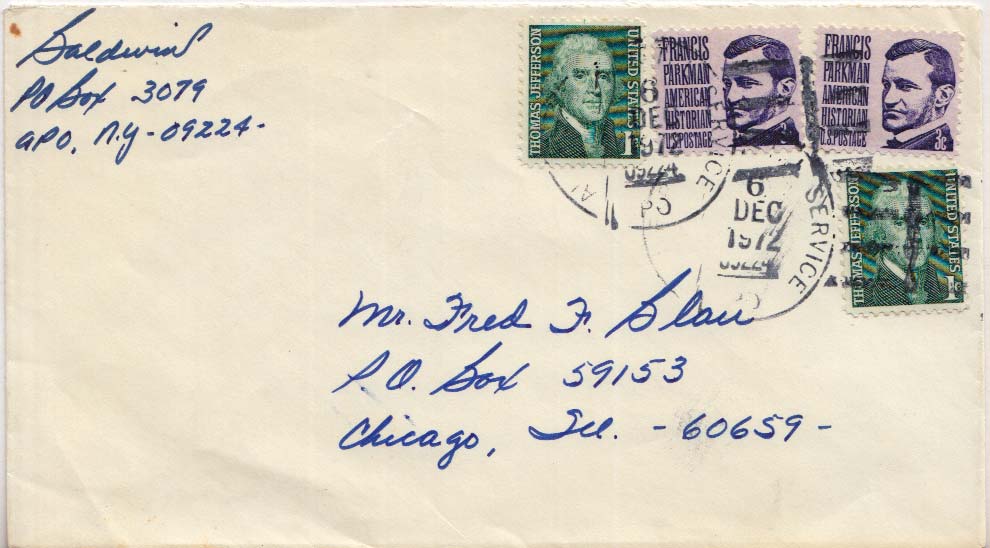 Baldwin
PO Box 3079
APO, N.Y - 09224 -
THOMAS JEFFERSON
UNITED STATES
1
FRANCIS
PARKMAN
AMERICAN
HISTORIAN
U.S.POSTAGE
FRANCIS
PARKMAN
AMERICAN
HISTORIAN
U.S.POSTAGE
3c
6
DEC
1972
09224
SERVICE
6
DEC
1972
09224
SERVICE
THOMAS JEFFERSON
UNITED STATES
1c
Mr. Fred F. Blau
P.O. Box 59153
Chicago, Ill. - 60659 -